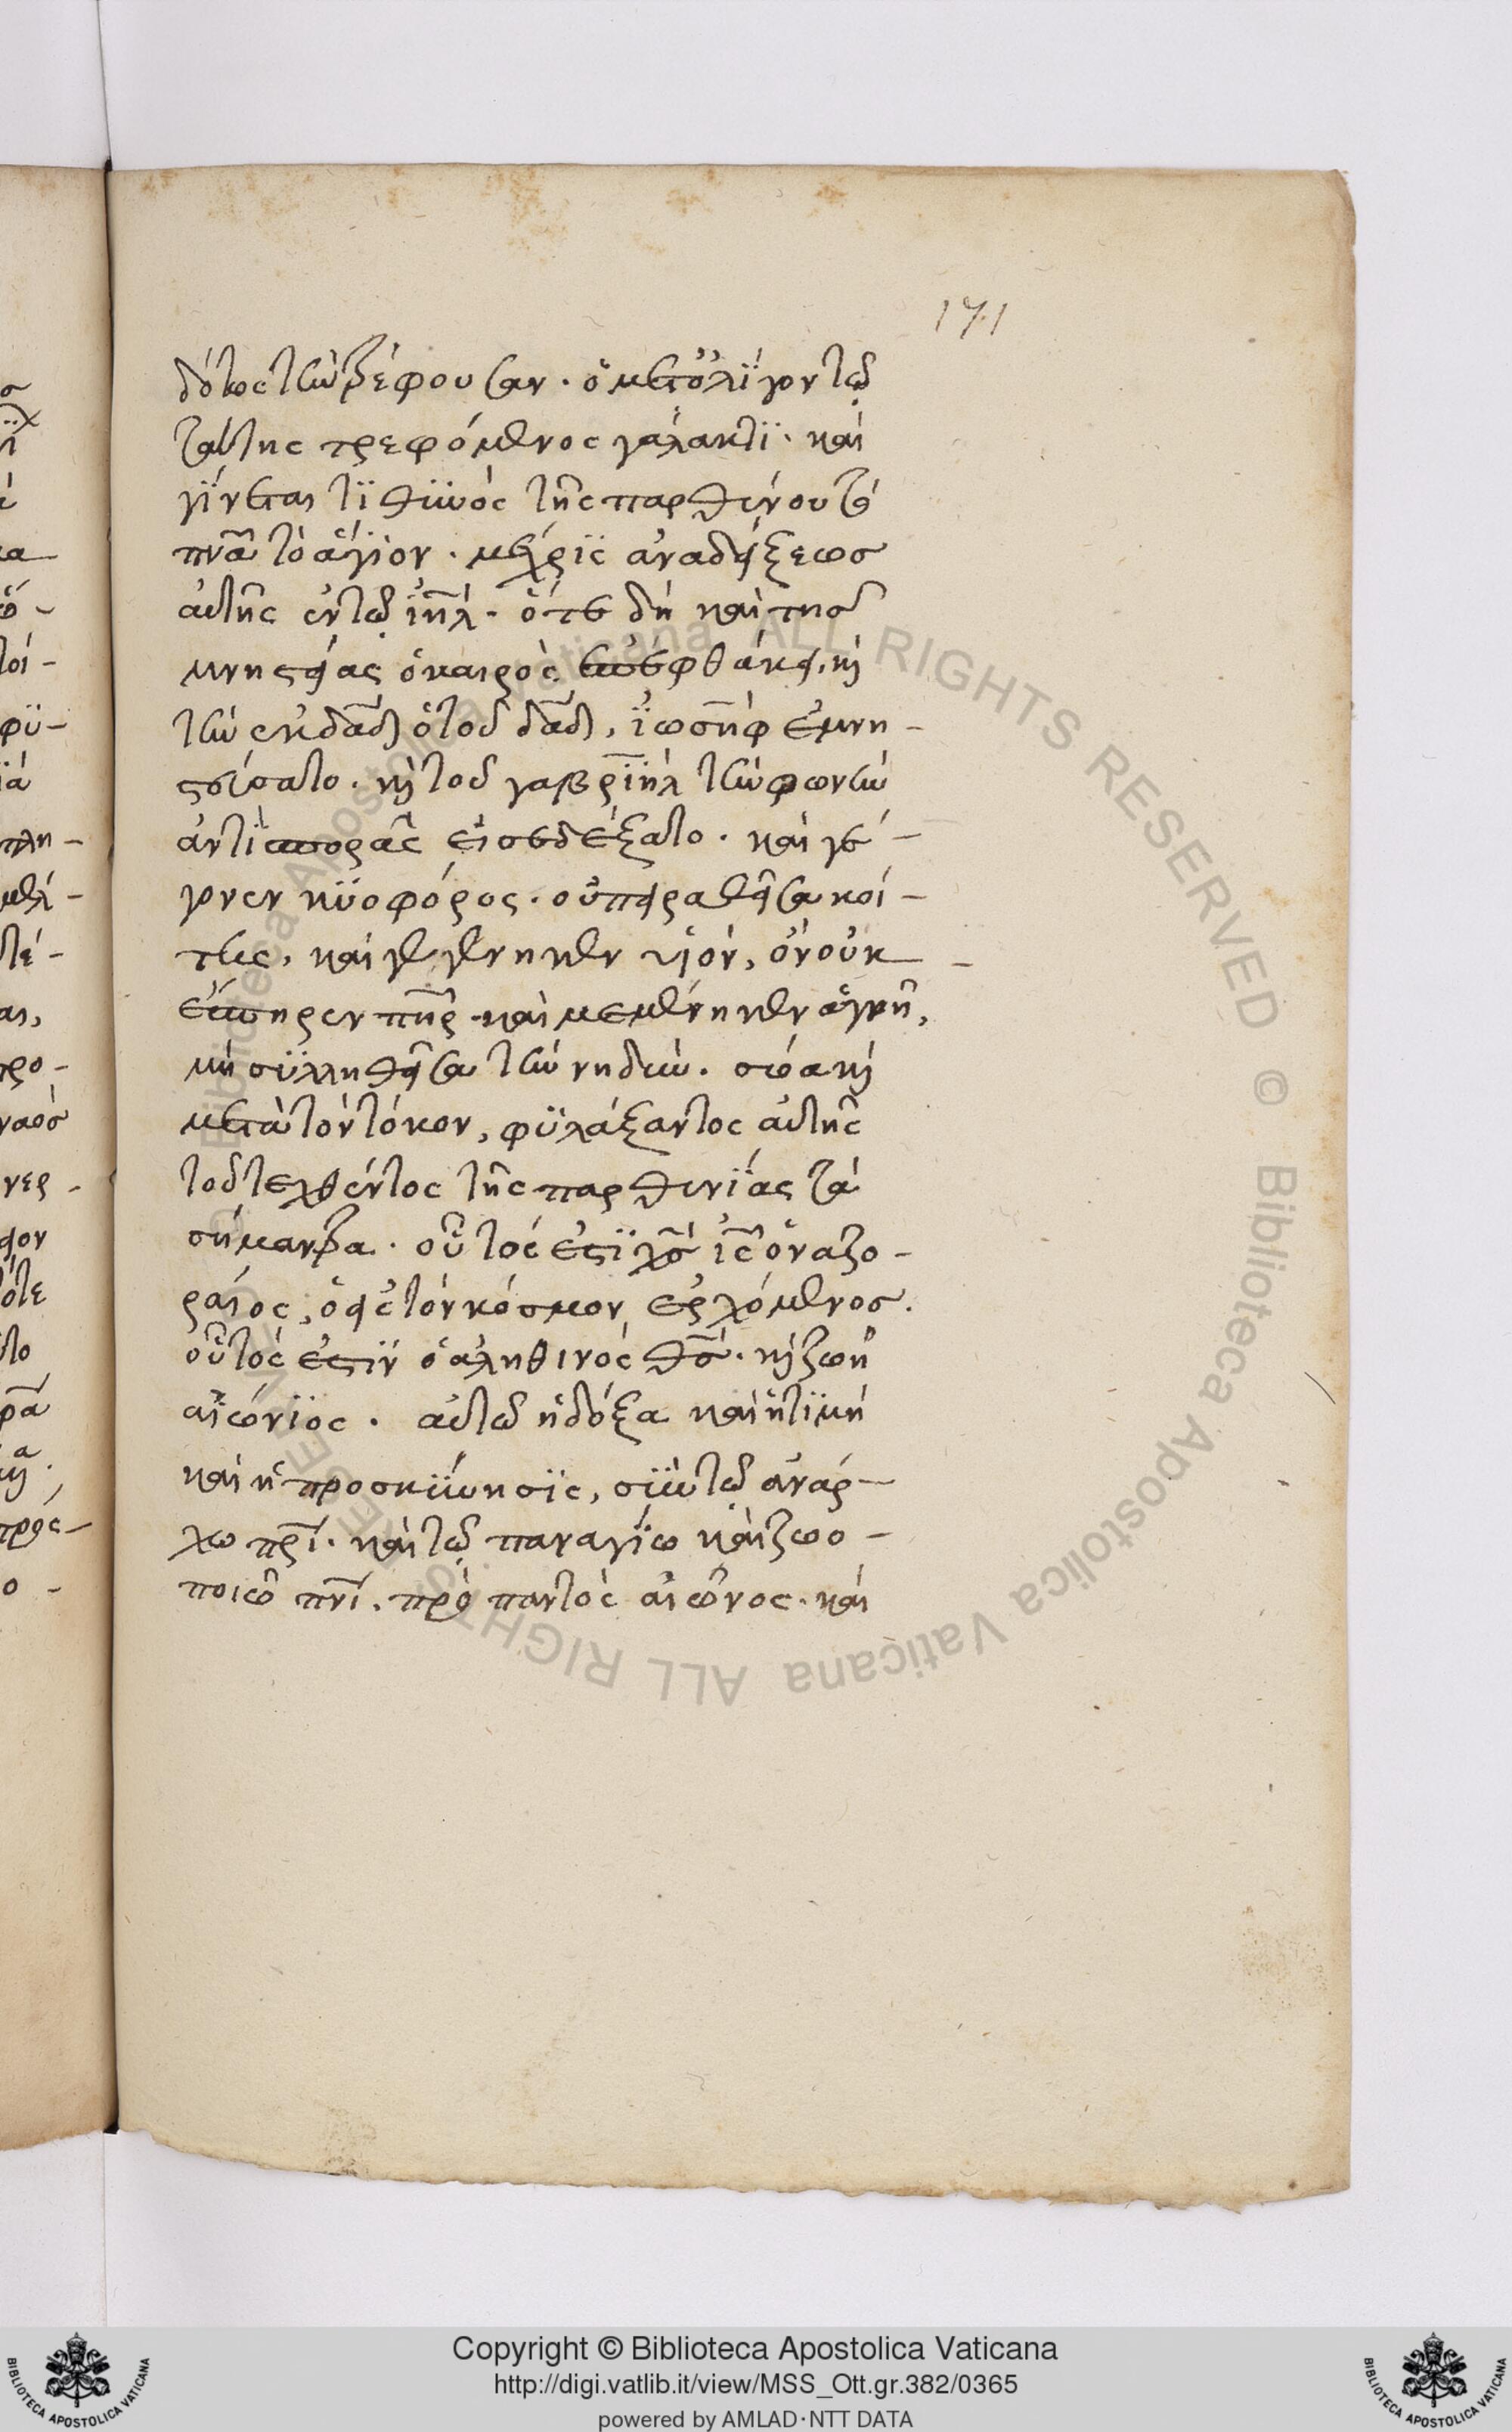 171
δότος τὴν τρέφουσαν· ὁ μετ' ὀλίγον τῷ
ταύτης τρεφόμενος γάλακτϊ· καὶ
γΐνεται τϊθηνὸς τῆς παρθένου τὸ
πνᾶ τὸ ἅγϊον· μέχρϊς ἀναδείξεως
αὐτῆς ἐν τῷ ἰῆλ· ὅτε δὴ καὶ τῆς
μνηστείας ὁ καιρὸς ἐπεφθάκει, καὶ
τὴν ἐκ δᾶδ ὁ τοῦ δᾶδ, ἰωσὴφ ἐμνη-
στεύσατο· καὶ τοῦ γαβρϊὴλ τὴν φωνὴν
ἀντὶ σπορᾶς εἰσεδέξατο· καὶ γέ-
γονεν κϋοφόρος· οὐ πειραθεῖσα κοί-
της, καὶ γεγέννηκεν υἱὸν, ὃν οὐκ
ἔσπηρεν πῆρ· καὶ μεμένηκεν ἁγνὴ,
μὴ σϋλληθεῖσα τὴν νηδὺν· σῶα καὶ
μετὰ τὸν τόκον, φϋλάξαντος αὐτῆς
τοῦ τεχθέντος τῆς παρθενΐας τὰ
σήμαντρα· οὗτός ἐστϊ χς ἰς ὁ ναζο-
ραῖος, ὁ εἰς τὸν κόσμον ἐρχόμενος.
οὗτός ἐστϊν ὁ ἀληθινὸς θς· καὶ ζωὴ
αἰώνϊος· αὐτῶ ἡ δόξα καὶ ἡ τϊμὴ
καὶ ἡ προσκΰνησϊς, σὺν τῷ ἀνάρ-
χω πρϊ· καὶ τῷ παναγΐω καὶ ζωο-
ποιῶ πνϊ· πρὸ παντὸς αἰῶνος· καὶ
Copyright © Biblioteca Apostolica Vaticana
http://digi.vatlib.it/view/MSS_Ott.gr.382/0365
powered by AMLAD·NTT DATA